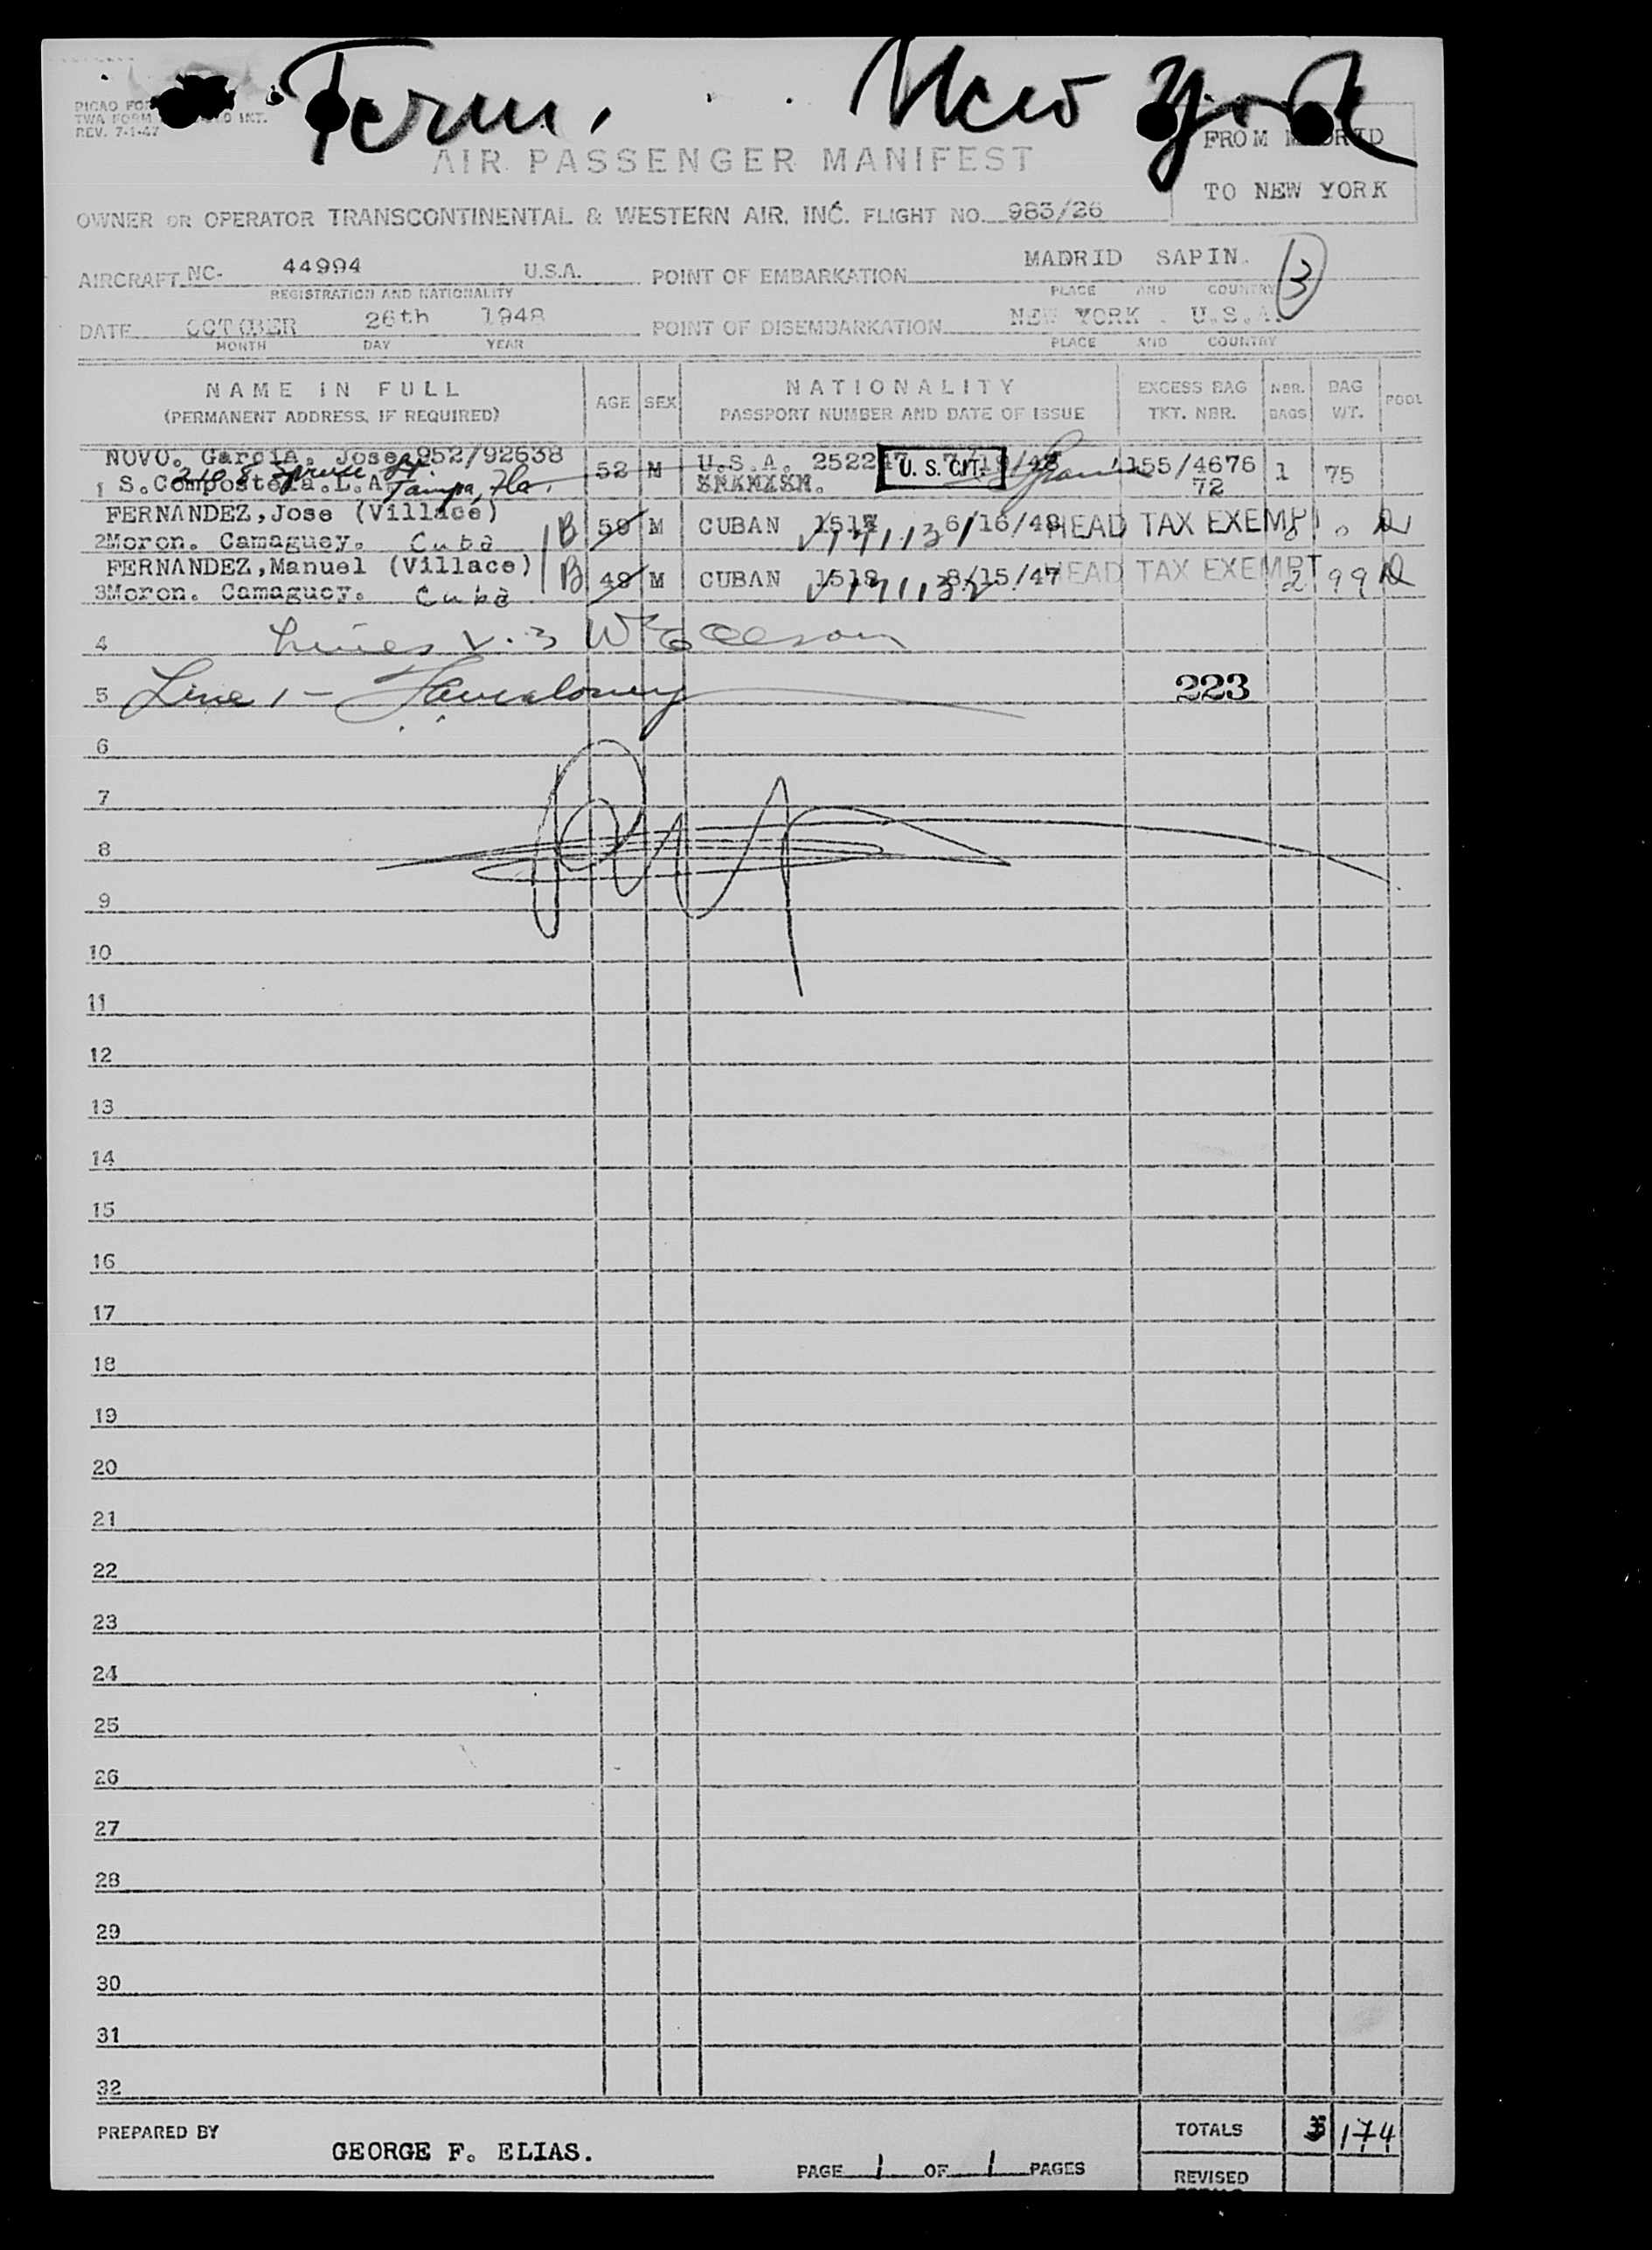 Ferm. New York
PICAO FOR
TWA FORM O INT.
REV. 7-1-47
FROM MADRID
TO NEW YORK
AIR PASSENGER MANIFEST
OWNER OR OPERATOR TRANSCONTINENTAL & WESTERN AIR, INC. FLIGHT NO. 983/26
AIRCRAFT NC- 44994 U.S.A. POINT OF EMBARKATION MADRID SAPIN. 3
REGISTRATION AND NATIONALITY PLACE AND COUNTRY
DATE OCTOBER 26th 1948 POINT OF DISEMBARKATION NEW YORK . U.S.A.
MONTH DAY YEAR PLACE AND COUNTRY
NAME IN FULL AGE SEX NATIONALITY EXCESS BAG NBR. BAG POOL
(PERMANENT ADDRESS, IF REQUIRED) PASSPORT NUMBER AND DATE OF ISSUE TKT. NBR. BAGS WT.
NOVO. Garcia. Jose 952/92638 52 M U.S.A. 252247 U. S. CIT. 7/19/48 155/4676 1 75
2108 Spruce St.
1 S.Compostela.L.A. Tampa, Fla. 72
FERNANDEZ,Jose (Villace) B 50 M CUBAN 1517 6/16/48 HEAD TAX EXEMPT
2 Moron. Camaguey. Cuba V171131
FERNANDEZ,Manuel (Villace) B 49 M CUBAN 1518 8/15/47 HEAD TAX EXEMPT 2 99
3 Moron. Camaguey. Cuba V171132
4 Lines
5 Line 1 - 223
6
7
8
9
10
11
12
13
14
15
16
17
18
19
20
21
22
23
24
25
26
27
28
29
30
31
32
PREPARED BY TOTALS 174
GEORGE F. ELIAS.
PAGE 1 OF 1 PAGES REVISED